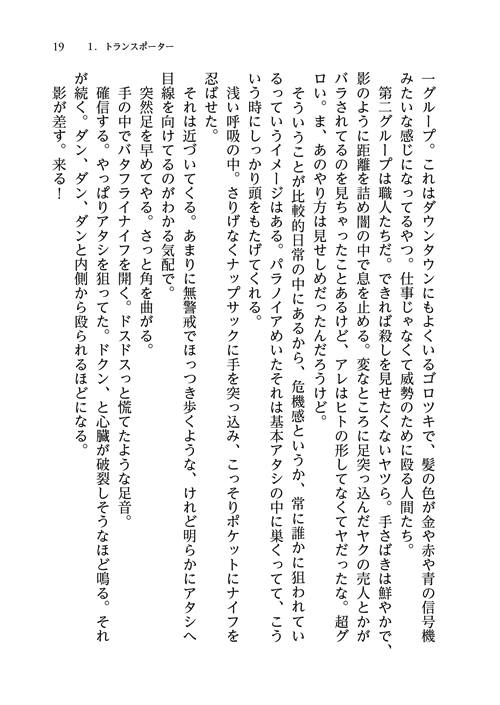 19　1．トランスポーター
一グループ。これはダウンタウンにもよくいるゴロツキで、髪の色が金や赤や青の信号機
みたいな感じになってるやつ。仕事じゃなくて威勢のために殴る人間たち。
　第二グループは職人たちだ。できれば殺しを見せたくないヤツら。手さばきは鮮やかで、
影のように距離を詰め闇の中で息を止める。変なところに足突っ込んだヤクの売人とかが
バラされてるのを見ちゃったことあるけど、アレはヒトの形してなくてヤだったな。超グ
ロい。ま、あのやり方は見せしめだったんだろうけど。
　そういうことが比較的日常の中にあるから、危機感というか、常に誰かに狙われてい
るっていうイメージはある。パラノイアめいたそれは基本アタシの中に巣くってて、こう
いう時にしっかり頭をもたげてくれる。
　浅い呼吸の中。さりげなくナップサックに手を突っ込み、こっそりポケットにナイフを
忍ばせた。
　それは近づいてくる。あまりに無警戒でほっつき歩くような、けれど明らかにアタシへ
目線を向けてるのがわかる気配で。
　突然足を早めてやる。さっと角を曲がる。
　手の中でバタフライナイフを開く。ドスドスっと慌てたような足音。
　確信する。やっぱりアタシを狙ってた。ドクン、と心臓が破裂しそうなほど鳴る。それ
が続く。ダン、ダン、ダンと内側から殴られるほどになる。
　影が差す。来る！